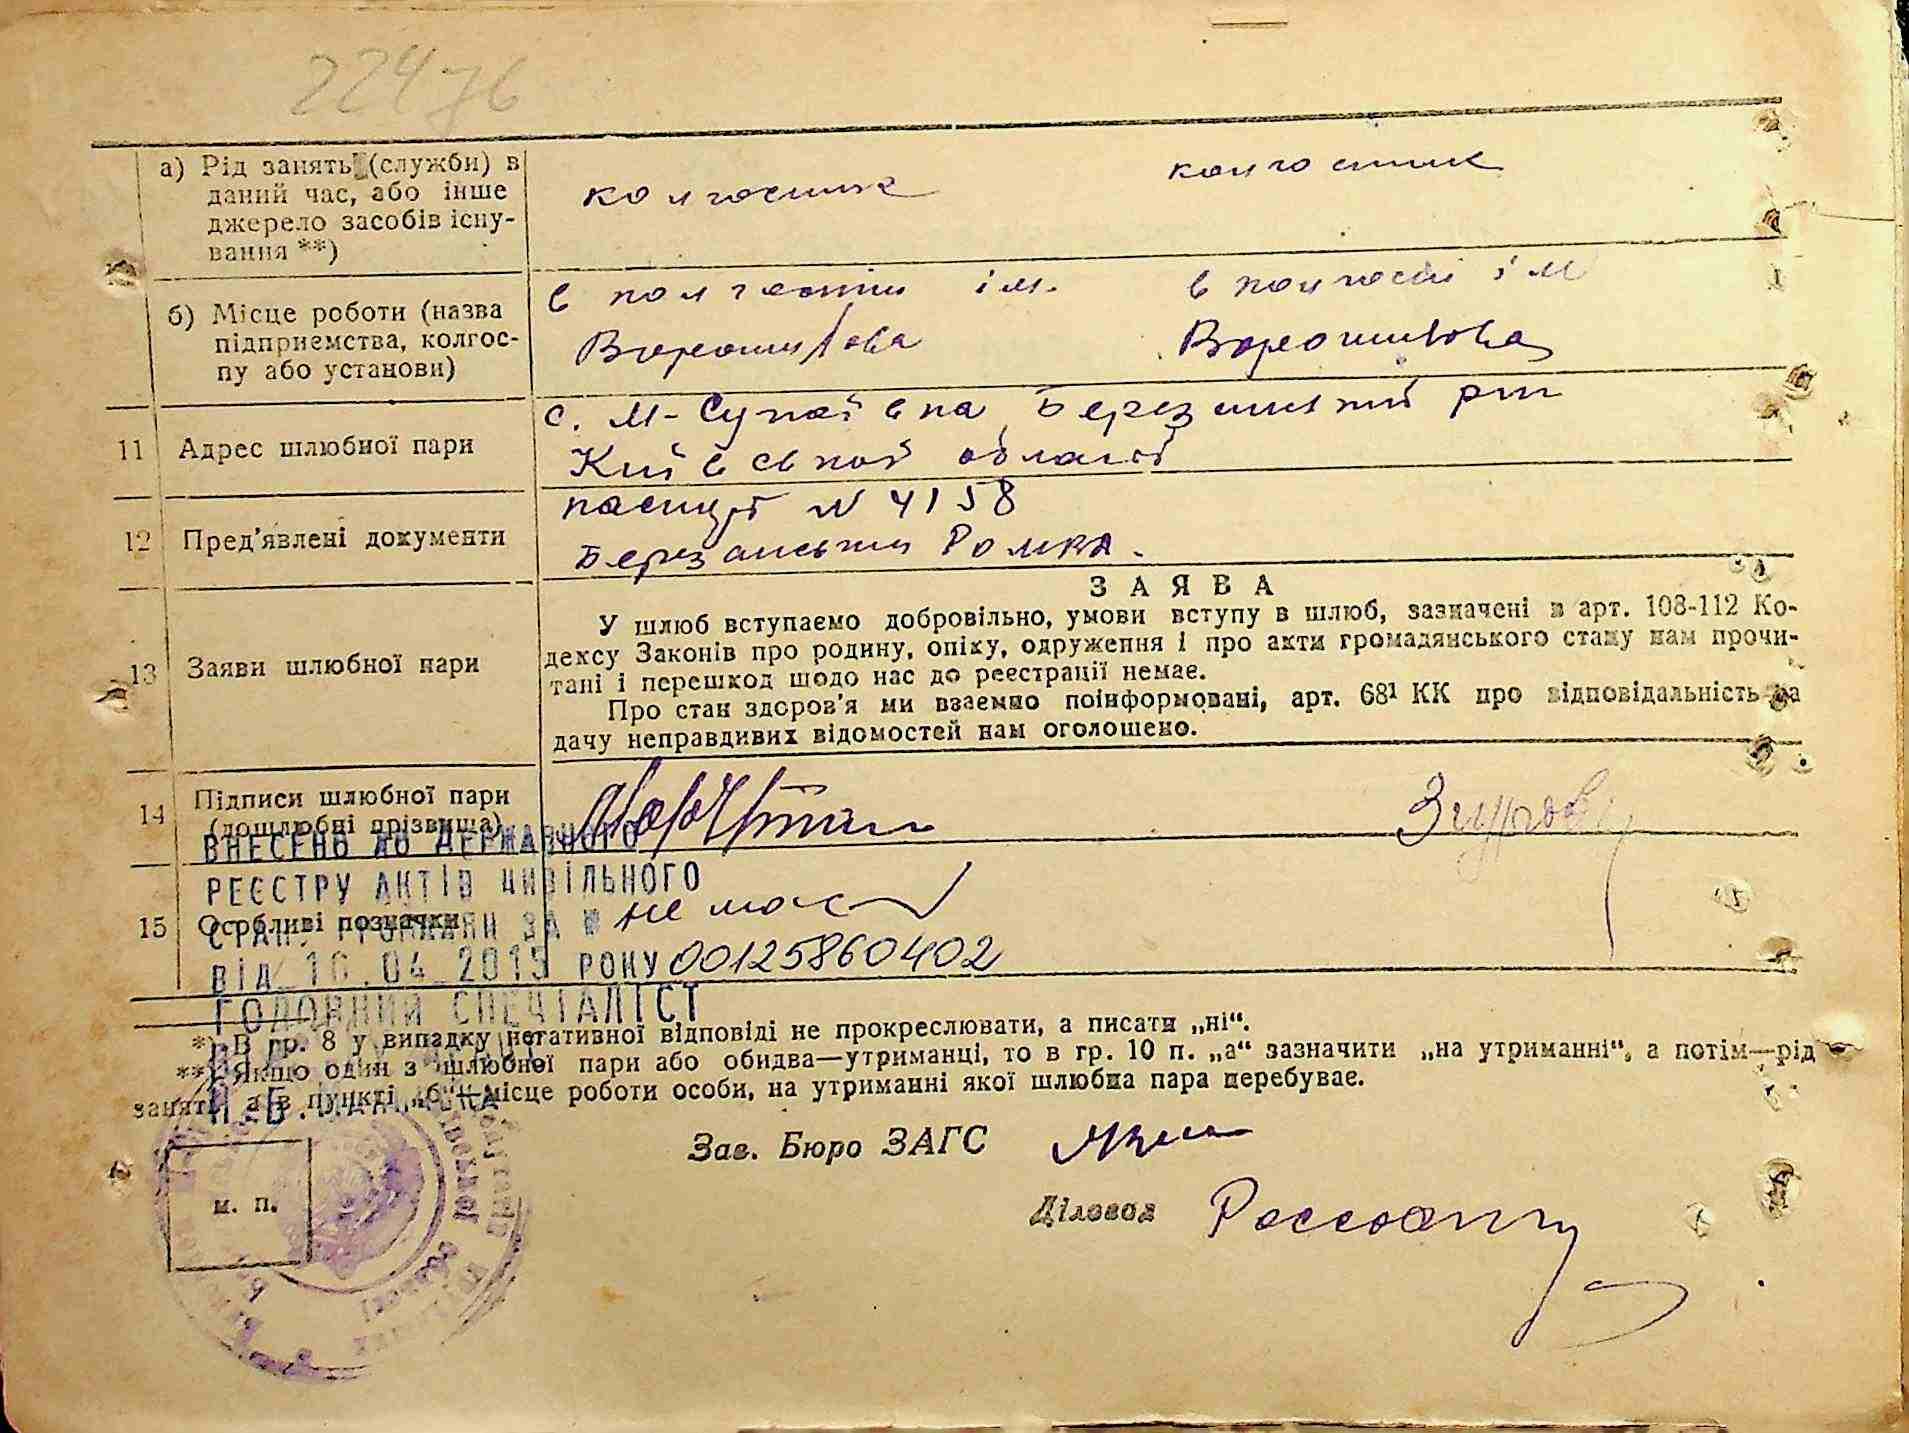 22476
а) Рід занять (служби) в
даний час, або інше
джерело засобів існу-
вання **)
колгоспник
колгоспник
б) Місце роботи (назва
підприємства, колгос-
пу або установи)
в колгоспі ім.
Ворошилова
в колгоспі ім
Ворошилова
11 Адрес шлюбної пари
с. М-Супоївка Березанський р-н
Київської області
12 Пред'явлені документи
паспорт N 4158
Березанським
13 Заяви шлюбної пари
ЗАЯВА
У шлюб вступаємо добровільно, умови вступу в шлюб, зазначені в арт. 108-112 Ко-
дексу Законів про родину, опіку, одруження і про акти громадянського стану нам прочи-
тані і перешкод щодо нас до реєстрації немає.
Про стан здоров'я ми взаємно поінформовані, арт. 68¹ КК про відповідальність за
дачу неправдивих відомостей нам оголошено.
14 Підписи шлюбної пари
(дошлюбні прізвища)
ВНЕСЕНО ДО ДЕРЖАВНОГО
РЕЄСТРУ АКТІВ ЦИВІЛЬНОГО
15 Особливі позначки
не має
СТАНУ ГРОМАДЯН ЗА №
ВІД 10.04 2015 РОКУ 00125860402
ГОЛОВНИЙ СПЕЦІАЛІСТ
*) В гр. 8 у випадку негативної відповіді не прокреслювати, а писати „ні“.
**) Якщо один з шлюбної пари або обидва—утриманці, то в гр. 10 п. „а“ зазначити „на утриманні“, а потім—рід
занять, а в пункті „б“—місце роботи особи, на утриманні якої шлюбна пара перебуває.
Зав. Бюро ЗАГС
Діловод
м. п.